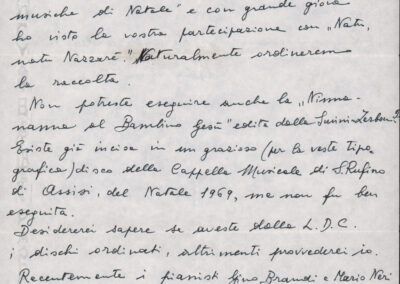 musiche di Natale" e con grande gioia
ho visto la vostra partecipazione con „Natu,
natu Nazzarè." Naturalmente ordineremo
la raccolta.
Non potreste eseguire anche la „Ninna-
nanna al Bambino Gesù" edita dalla Suvini-Zerboni?
Esiste già incisa in un grazioso (per la veste tipo
grafica) disco della Cappella Musicale di S. Rufino
di Assisi, del Natale 1969, ma non fu ben
eseguita.
Desidererei sapere se aveste dalla L.D.C.
i dischi ordinati, altrimenti provvederei io.
Recentemente i pianisti Gino Brandi e Mario Neri